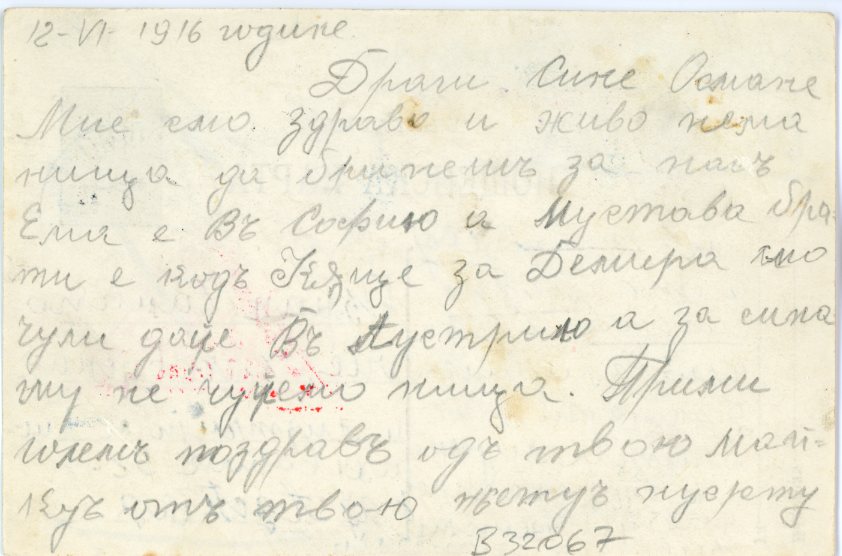 12-VI-1916 године
Драги Сине Османе
Мие смо здраво и живо нема
нища да бринешъ за насъ
Ема е Въ Софию а Мустава бра-
ти е кодъ за смо
чули дайе Въ Аустрию а за сина
му не чуемо нища. Прими
големъ поздравъ одъ твою май-
куъ отъ твою
B32067